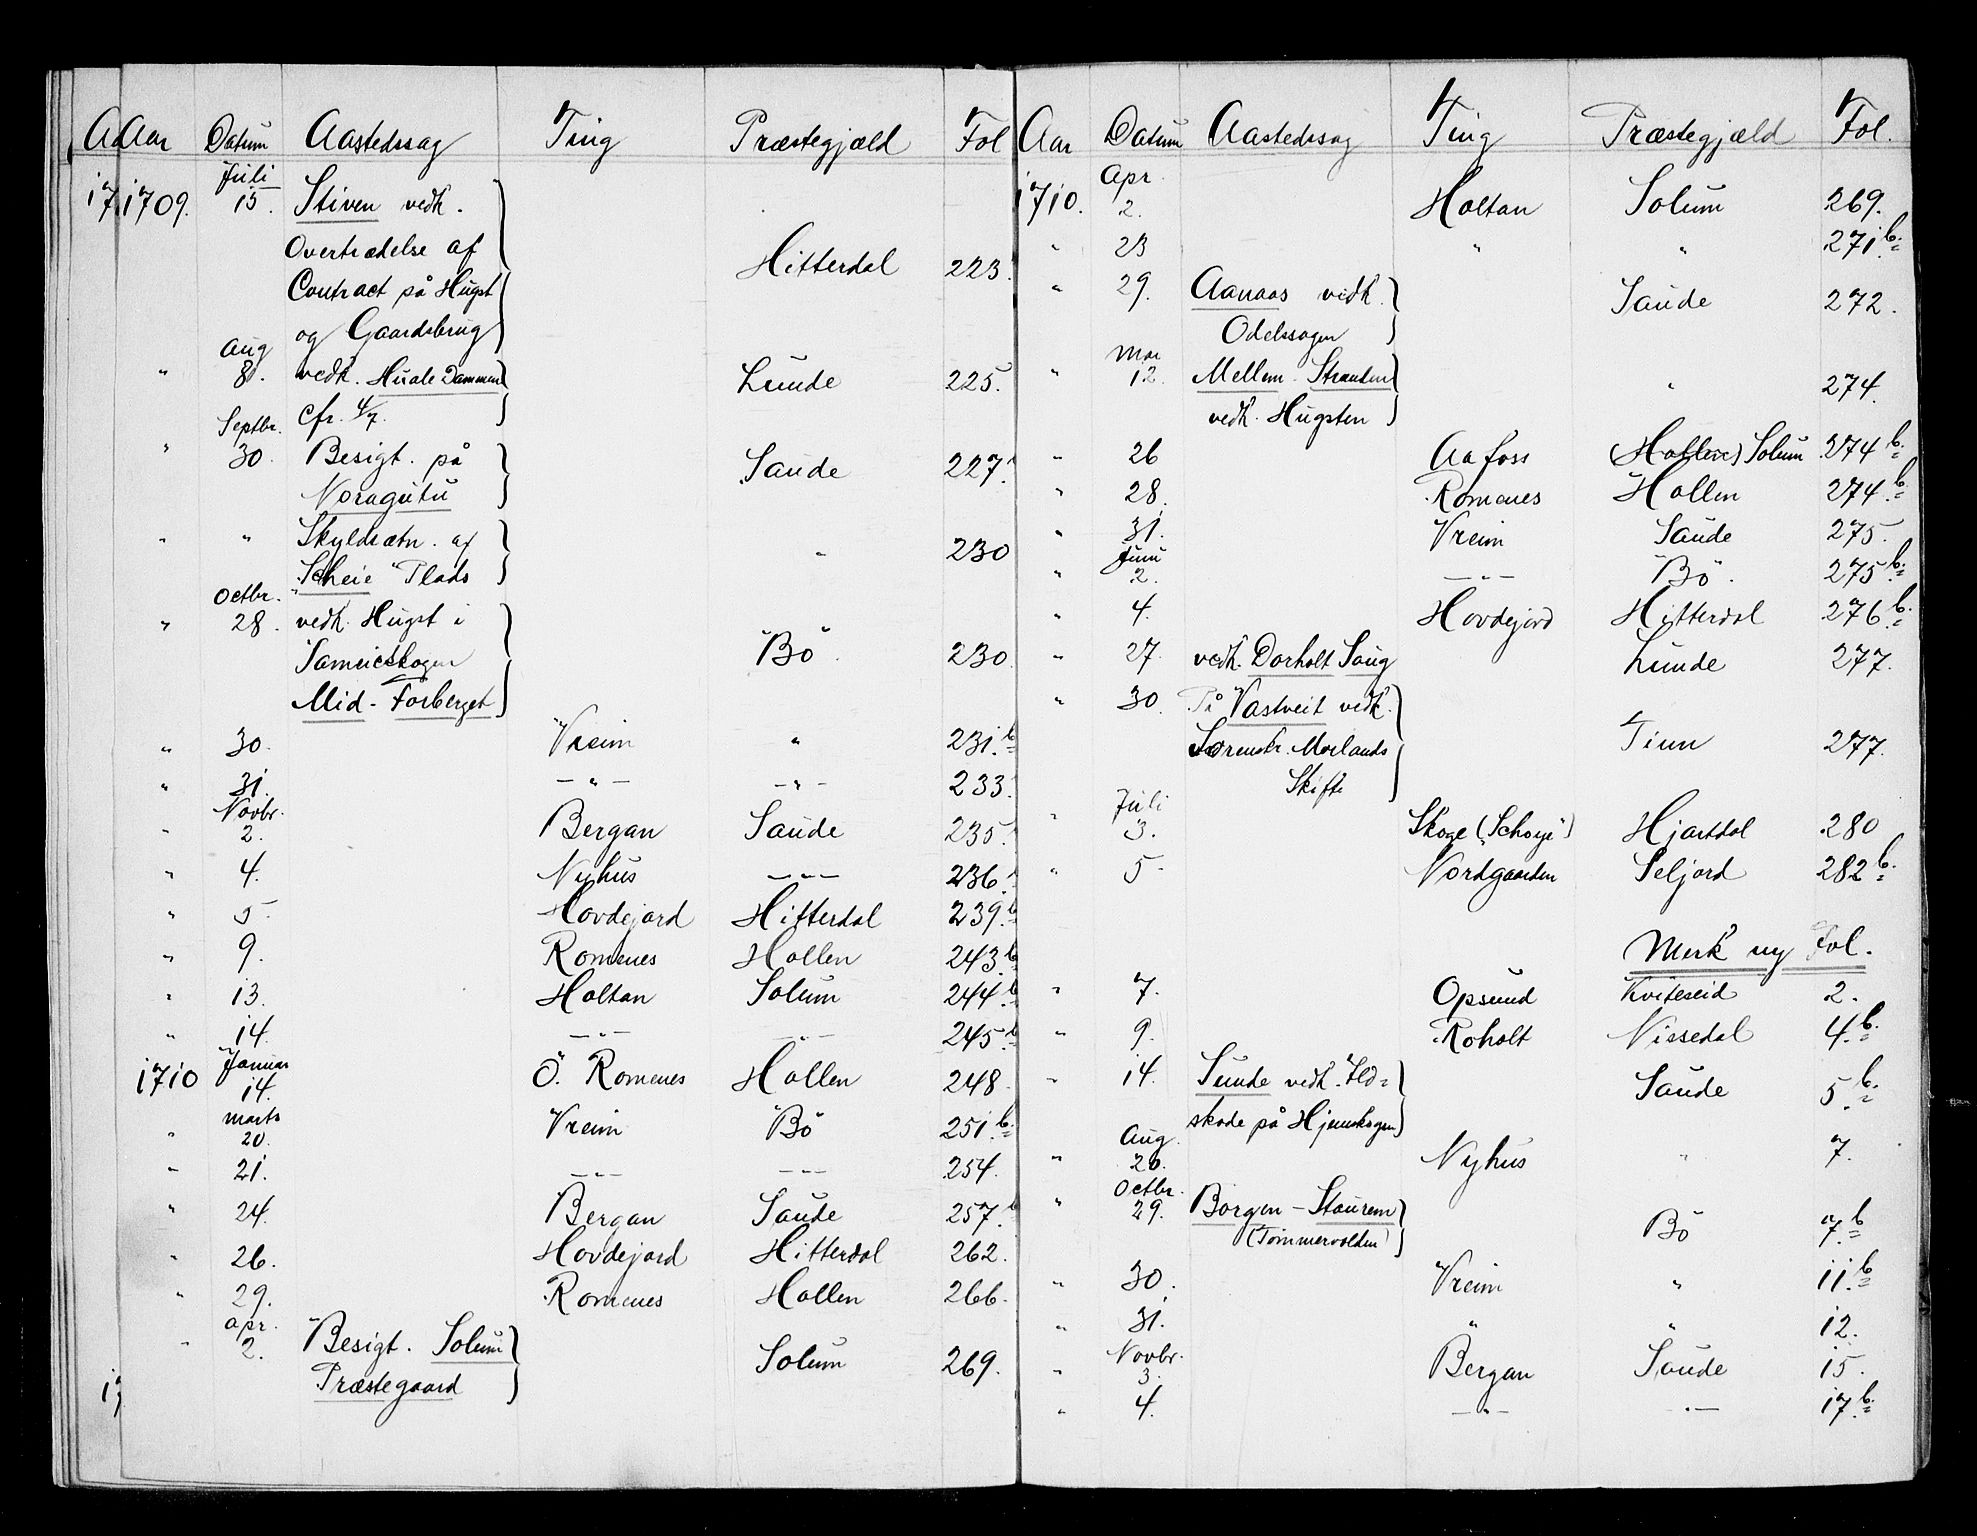 Aar Datum Aastedssag Ting Præstegjæld Fol
Juli
1709. 15. Stiven vedk.
Overtrædelse af
Contract på Hugst Hitterdal 223.
og Gaardsbrug
Aug
" 8. vedk. Huale Dammen Lunde 225.
cfr. 4/7.
Septbr.
" 30. Besigt. på Saude 227.
Noragutu
" " Skyldsætn. af " 230
Scheie Plads
Octbr.
" 28. vedk. Hugst i
Bö 230.
Mid-Forberget
" 30. Vreim " 231.b
" 31. —"— —"— 233.
Novbr.
" 2. Bergan Saude 235.
" 4. Nyhus —"— 236.
" 5. Hovdejord Hitterdal 239.b
" 9. Romenes Hollen 243.b
" 13. Holtan Solum 244.b
" 14. —"— —"— 245.b
Januar
1710 14. Ö. Romenes Hollen 248.
Marts
" 20. Vreim Bö 251.b
" 21. —"— —"— 254.
" 24. Bergan Saude 257.b
" 26. Hovdejord Hitterdal 262.
" 29. Romenes Hollen 266.
Apr.
" 2. Besigt. Solum Solum 269.
Præstegaard
Aar Datum Aastedssag Ting Præstegjæld Fol.
Apr.
1710. 2. Holtan Solum 269.
" 23 " " 271.b
" 29. Aanaas vedk. Saude 272.
Odelssagen
Mai
" 12. Mellem-Stranden " 274.
vedk. Hugsten
" 26 Aafoss (Hollen) Solum 274.b
" 28. Romenes Hollen 274.b
" 31. Vreim Saude 275.
Juni
" 2. —"— Bö. 275.b
" 4. Hovdejord Hitterdal 276.b
" 27. vedk. Dorholt Saug Lunde 277.
" 30. På Vastveit vedk.
Sorenskr. Morlands Tinn 277.
Skifte
Juli
" 3. Skoge (Schoye) Hjartdal 280
" 5. Nordgaarden Seljord 282.b
Merk ny Fol.
" 7. Opsund Kviteseid 2.
" 9. Roholt Nissedal 4.b
" 14. Sunde vedk. Ild= Saude 5.b
skade på Hjemskogen
Aug.
" 20. Nyhus " 7.
Octbr.
" 29. Borgen-Staurem Bö 7.b
(Tömmervolden)
" 30. Vreim " 11.b
" 31. " " 12.
Novbr.
" 3. Bergan Saude 15.
" 4. —"— —"— 17.b